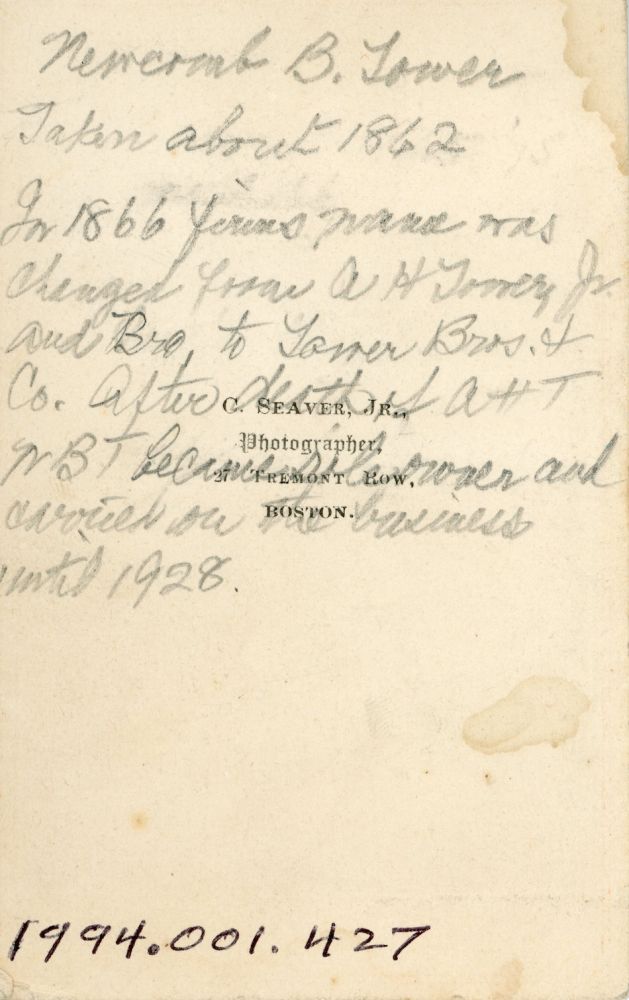 Newcomb B. Tower
Taken about 1862
In 1866 firms name was
changed from A H Tower, Jr.
and Bro, to Tower Bros. &
Co. After death of A H T
C. SEAVER, JR.,
Photographer,
N B T became sole owner and
27 TREMONT ROW,
carried on the business
BOSTON.
until 1928.
1994.001.427